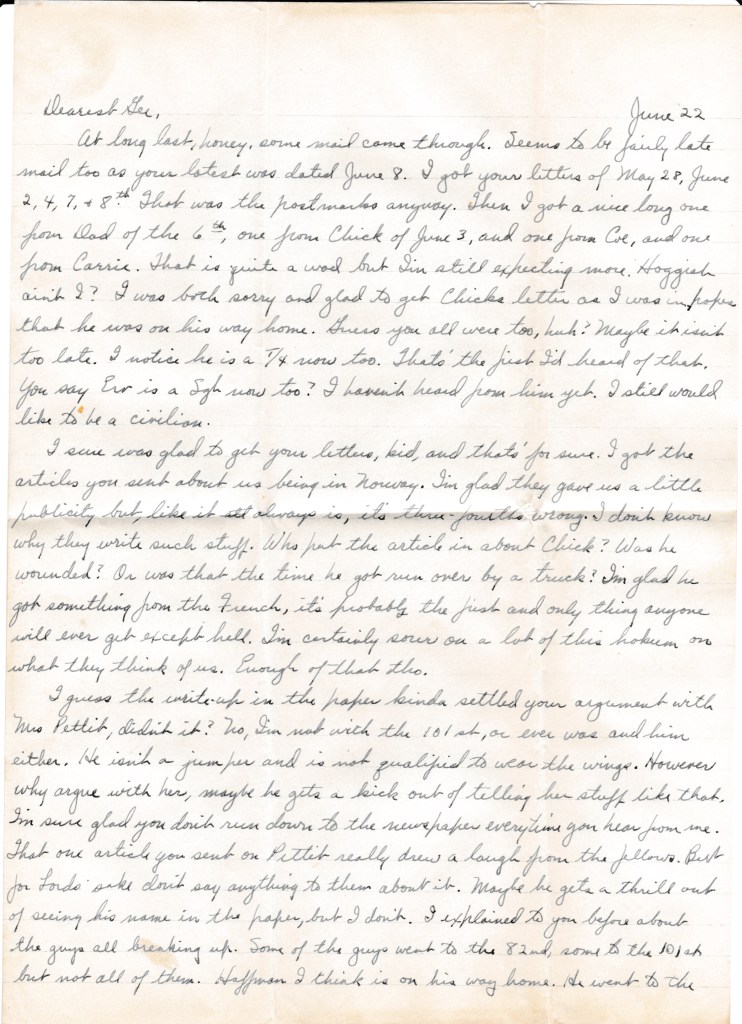 June 22
Dearest Gee,
At long last, honey, some mail came through. Seems to be fairly late
mail too as your latest was dated June 8. I got your letters of May 28, June
2, 4, 7, + 8th. That was the postmarks anyway. Then I got a nice long one
from Dad of the 6th, one from Chick of June 3, and one from Coe, and one
from Carrie. That is quite a wad but I'm still expecting more. Hoggish
ain't I? I was both sorry and glad to get Chicks letter as I was in hopes
that he was on his way home. Guess you all were too, huh? Maybe it isn't
too late. I notice he is a T/4 now too. Thats' the first I'd heard of that.
You say Erv is a Sgt now too? I haven't heard from him yet. I still would
like to be a civilian.
I sure was glad to get your letters, kid, and that's' for sure. I got the
articles you sent about us being in Norway. I'm glad they gave us a little
publicity but, like it always is, it's three-fourths wrong. I don't know
why they write such stuff. Who put the article in about Chick? Was he
wounded? Or was that the time he got run over by a truck? I'm glad he
got something from the French, it's probably the first and only thing anyone
will ever get except hell. I'm certainly sour on a lot of this hokum on
what they think of us. Enough of that tho.
I guess the write-up in the paper kinda settled your argument with
Mrs Pettit, didn't it? No, I'm not with the 101st, or ever was and him
either. He isn't a jumper and is not qualified to wear the wings. However
why argue with her, maybe he gets a kick out of telling her stuff like that.
I'm sure glad you don't run down to the newspaper everytime you hear from me.
That one article you sent on Pettit really drew a laugh from the fellows. But
for Lords' sake don't say anything to them about it. Maybe he gets a thrill out
of seeing his name in the paper, but I don't. I explained to you before about
the guys all breaking up. Some of the guys went to the 82nd, some to the 101st
but not all of them. Haffman I think is on his way home. He went to the